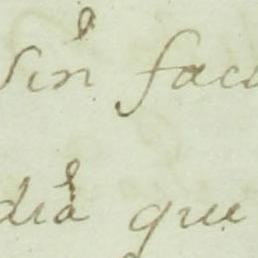 Sin facu
dia que